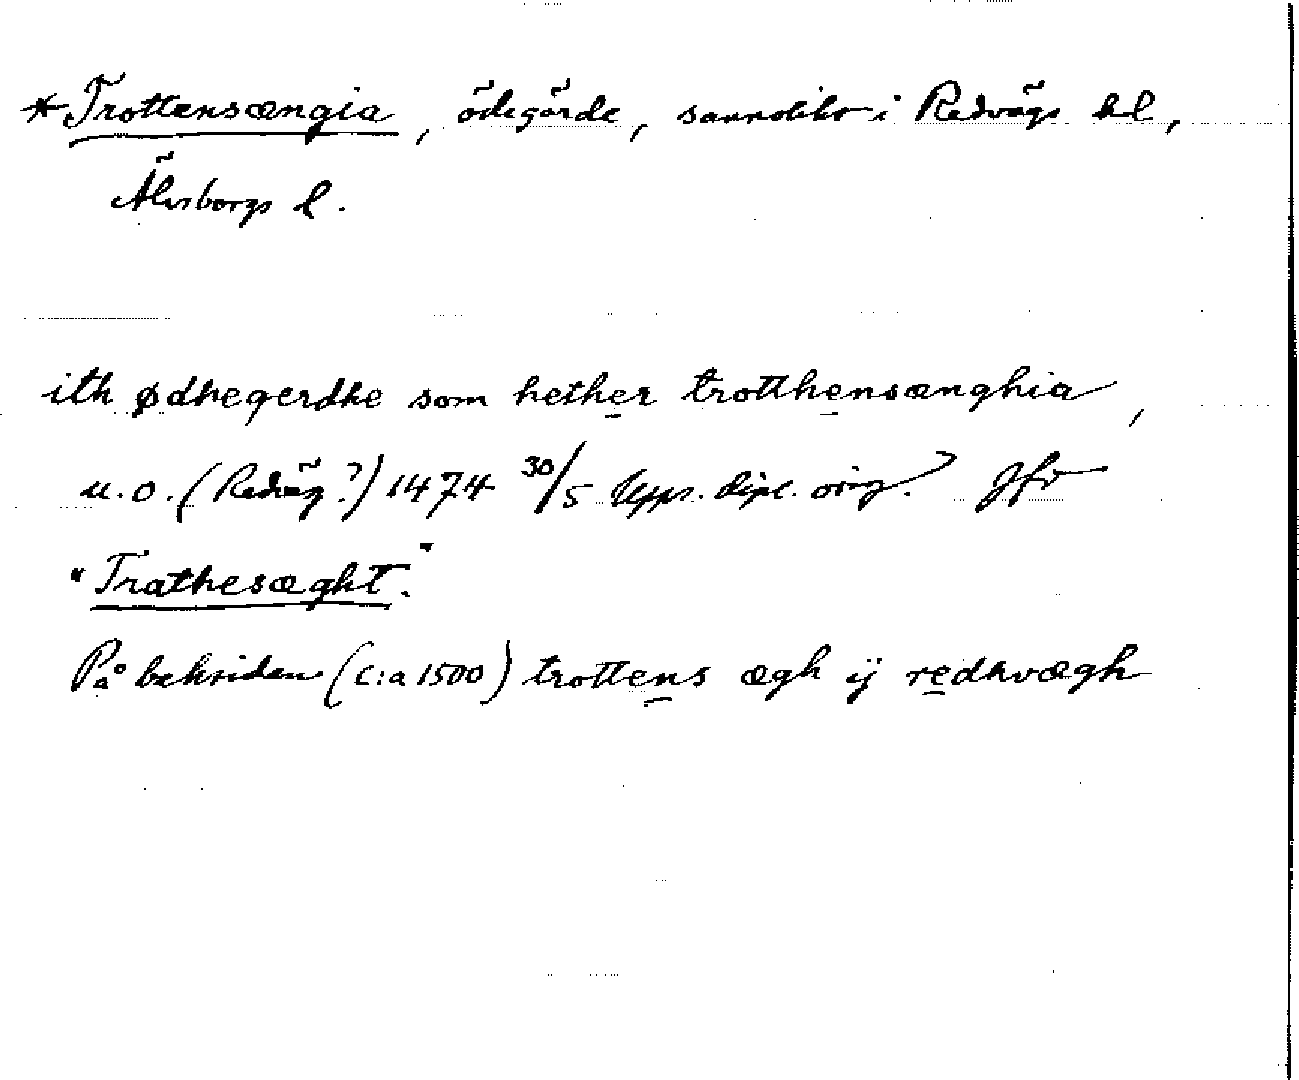 *Trottensængia, ödegärde, sannolikt i Redvägs hd,
Älvsborgs l.
ith ødhegerdhe som hether trotthensænghia,
u.o. (Redväg?) 1474 30/5 Upps. dipl. orig. Jfr
"Trathesæght."
På baksidan (c:a 1500) trottens ægh ij redhvægh